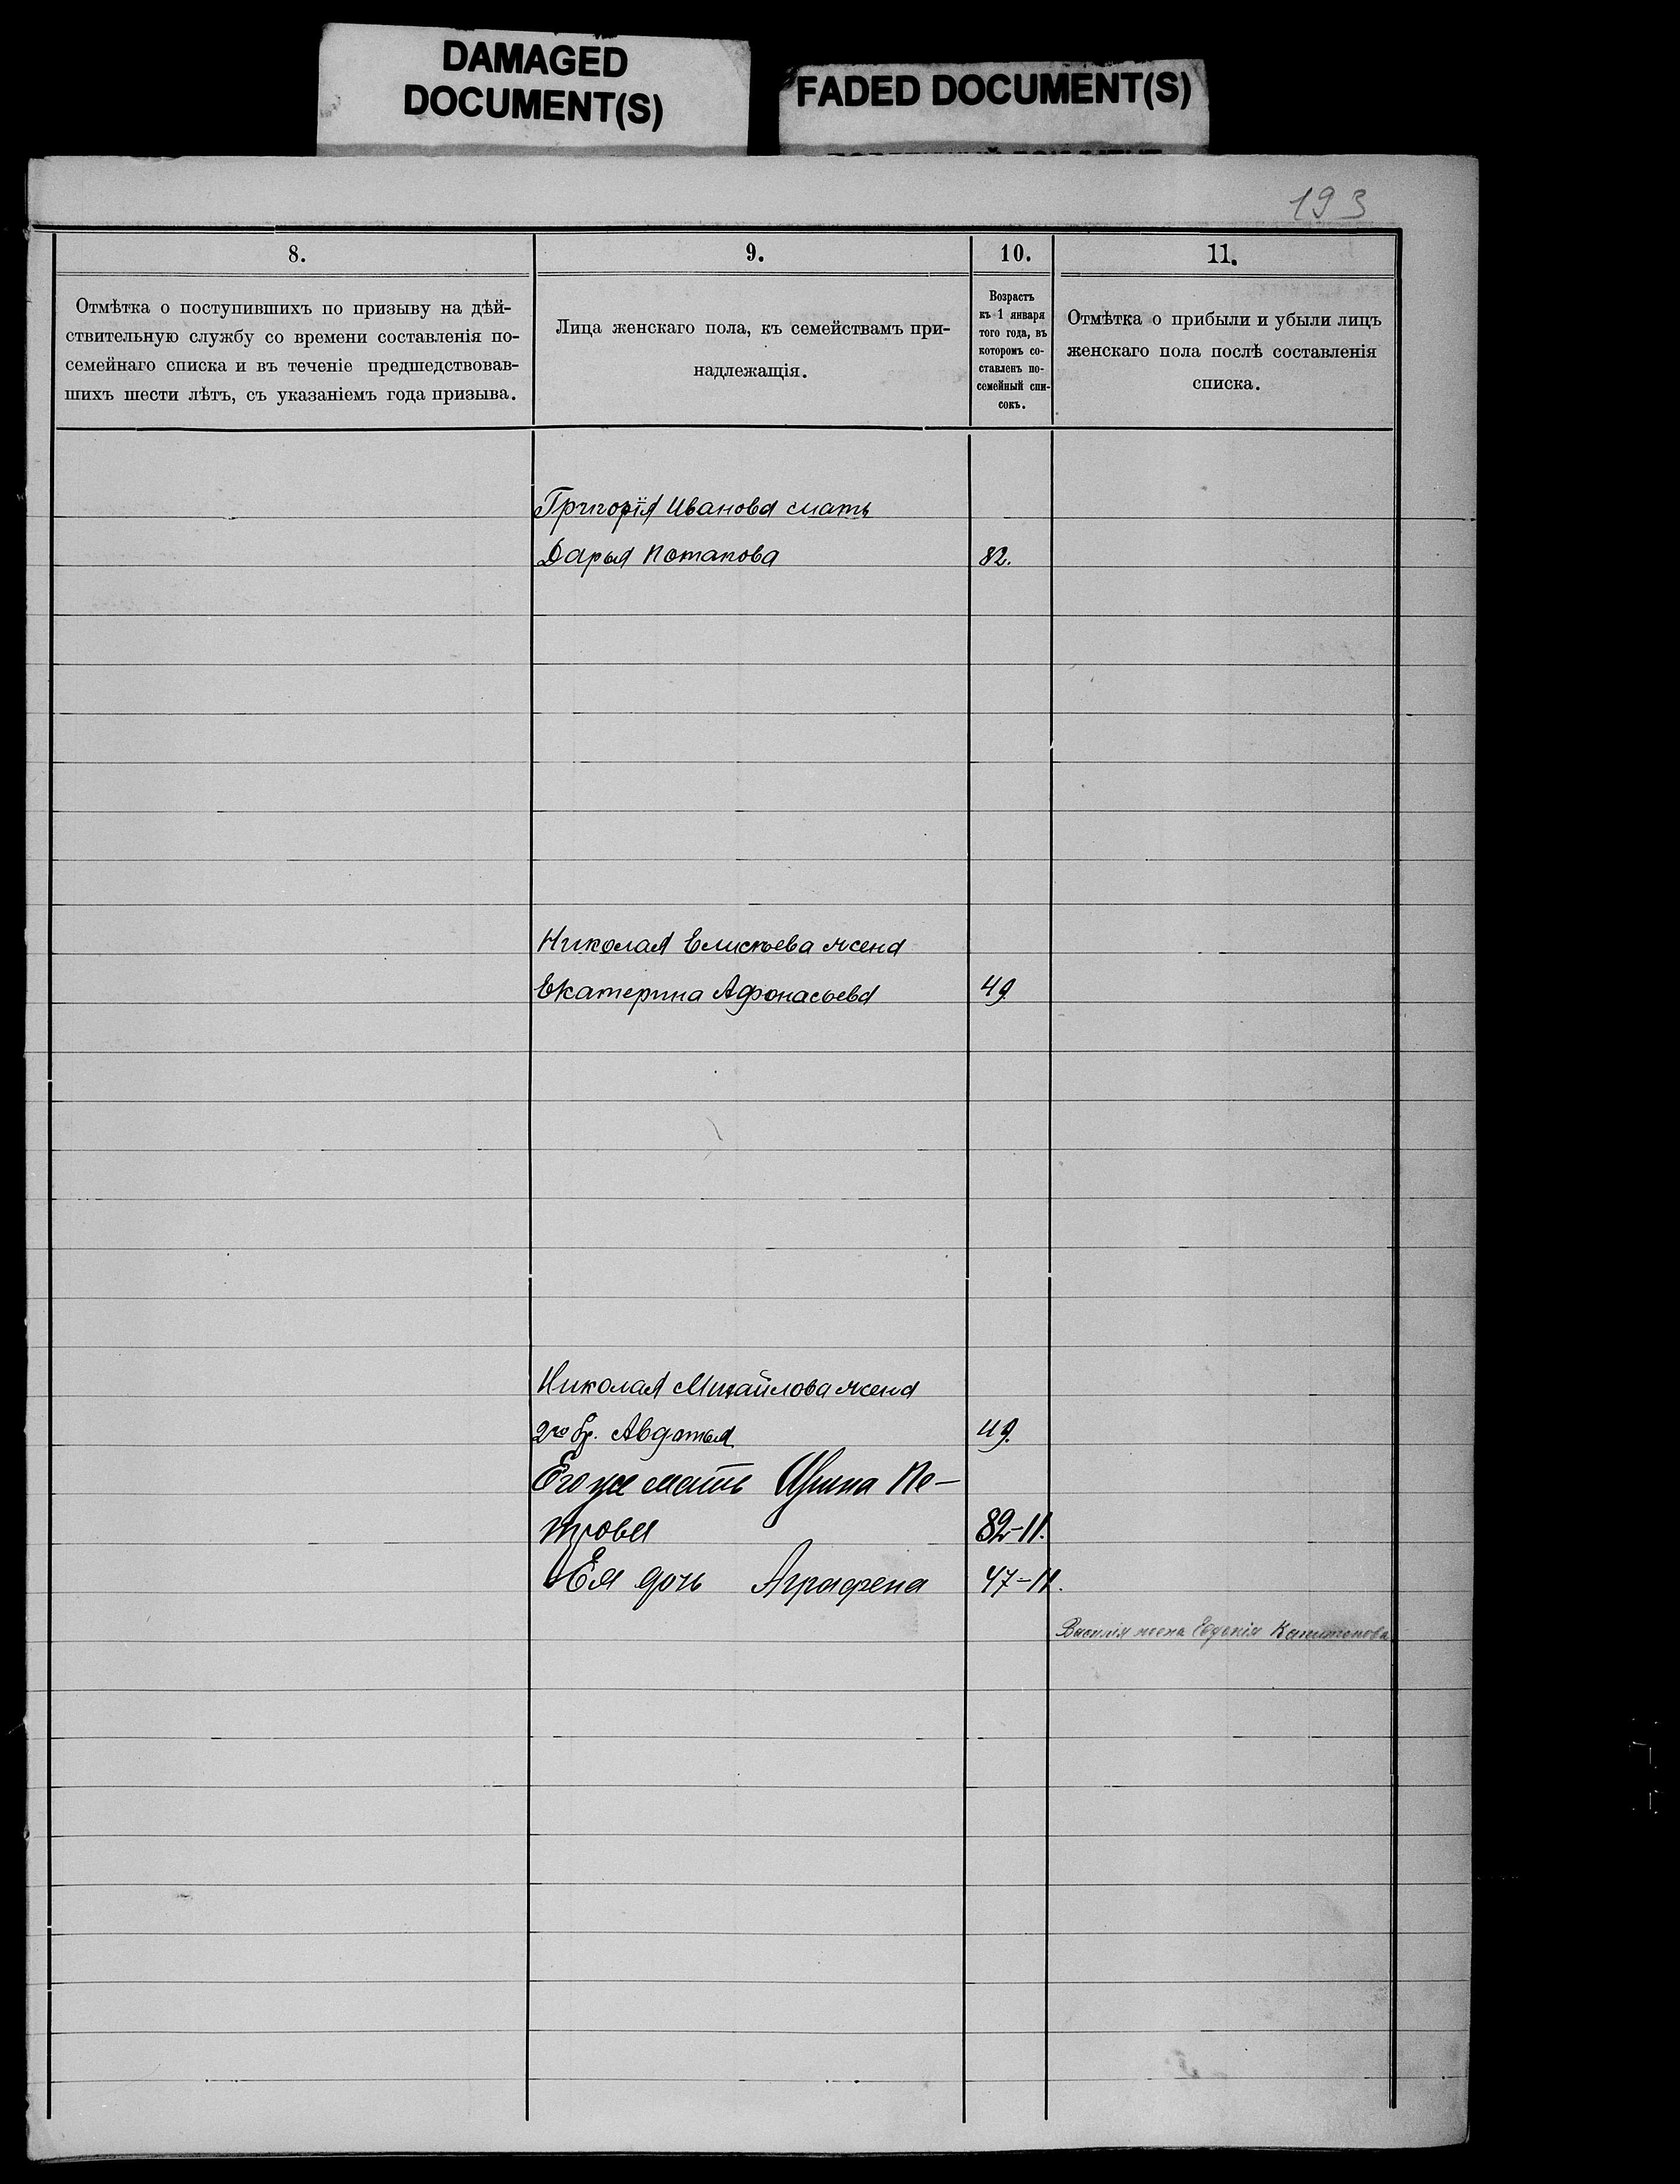 DAMAGED
DOCUMENT(S)
FADED DOCUMENT(S)
193
8.
9.
10.
11.
Отмѣтка о поступившихъ по призыву на дѣй-
ствительную службу со времени составленія по-
семейнаго списка и въ теченіе предшедствовав-
шихъ шести лѣтъ, съ указаніемъ года призыва.
Лица женскаго пола, къ семействамъ при-
надлежащія.
Возрастъ
къ 1 января
того года, въ
которомъ со-
ставленъ по-
семейный спи-
сокъ.
Отмѣтка о прибыли и убыли лицъ
женскаго пола послѣ составленія
списка.
Григорія Иванова мать
Дарья Потапова 82.
Николая Елисѣева жена
Екатерина Афонасьева 49
Николая Михайлова жена
2го бр. Авдотья 49.
Его же мать Ирина Пе-
трова 82-11.
Ея дочь Аграфена 47-11.
Василія жена Евдокія Капитонова